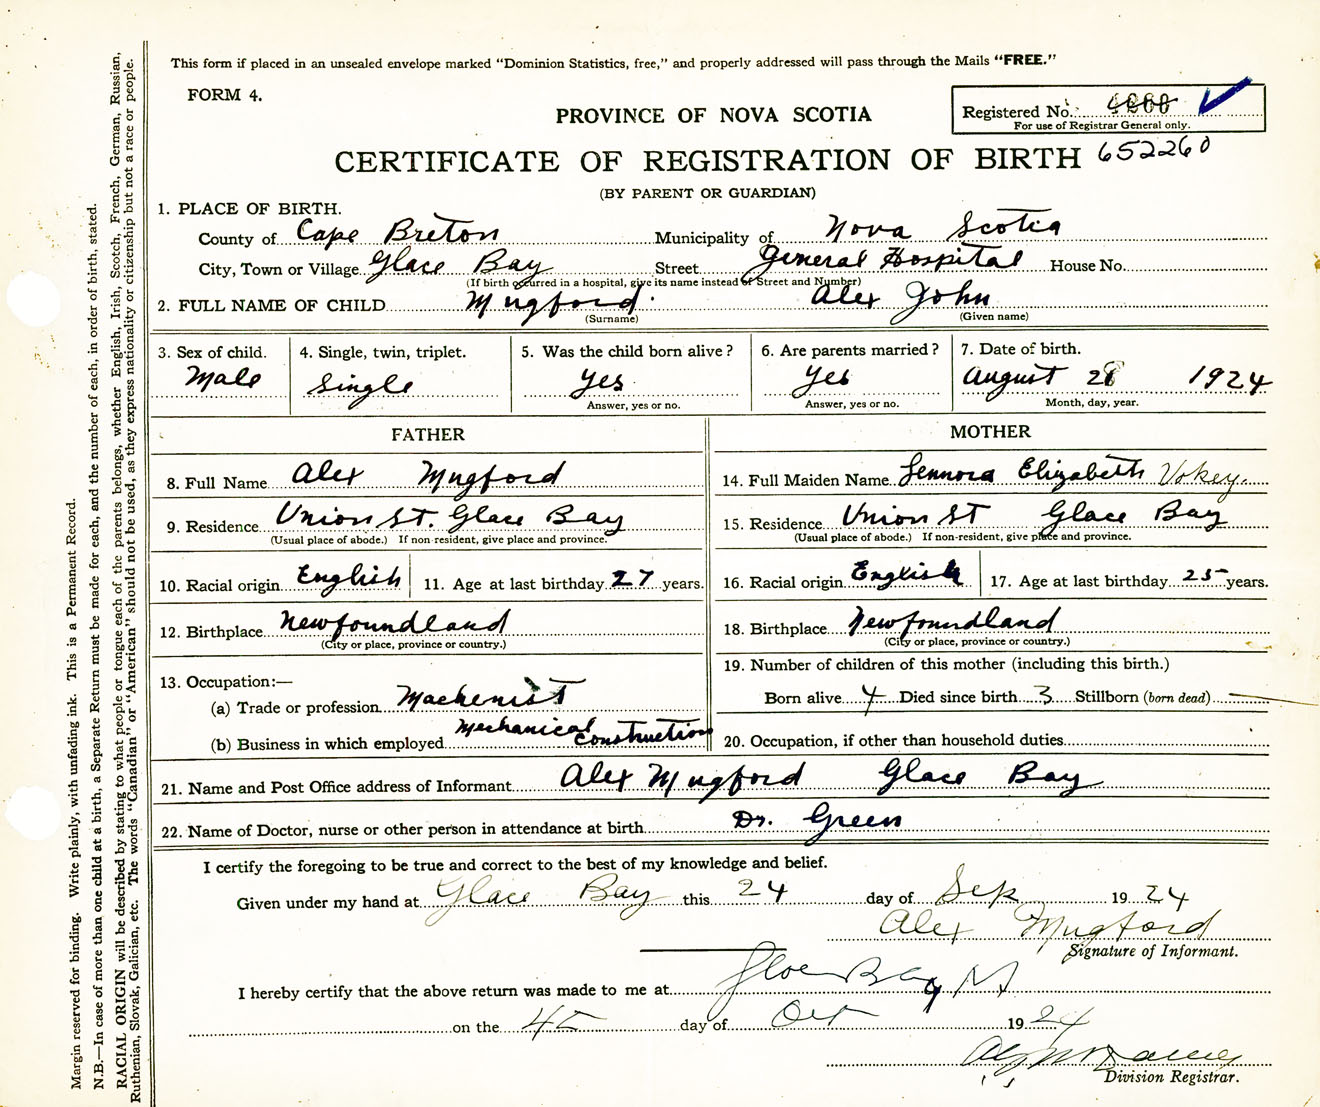 This form if placed in an unsealed envelope marked "Dominion Statistics, free," and properly addressed will pass through the Mails "FREE."
FORM 4.
PROVINCE OF NOVA SCOTIA
Registered No.
For use of Registrar General only.
CERTIFICATE OF REGISTRATION OF BIRTH 652260
(BY PARENT OR GUARDIAN)
1. PLACE OF BIRTH.
County of Cape Breton Municipality of Nova Scotia
City, Town or Village Glace Bay Street General Hospital House No.
(If birth occurred in a hospital, give its name instead of Street and Number)
2. FULL NAME OF CHILD Mugford Alex John
(Surname) (Given name)
3. Sex of child. 4. Single, twin, triplet. 5. Was the child born alive? 6. Are parents married? 7. Date of birth.
Male Single Yes Yes August 28 1924
Answer, yes or no. Answer, yes or no. Month, day, year.
FATHER MOTHER
8. Full Name Alex Mugford 14. Full Maiden Name Lennora Elizabeth Vokey.
9. Residence Union St. Glace Bay 15. Residence Union St Glace Bay
(Usual place of abode.) If non-resident, give place and province. (Usual place of abode.) If non-resident, give place and province.
10. Racial origin English 11. Age at last birthday 27 years. 16. Racial origin English 17. Age at last birthday 25 years.
12. Birthplace Newfoundland 18. Birthplace Newfoundland
(City or place, province or country.) (City or place, province or country.)
13. Occupation:— 19. Number of children of this mother (including this birth.)
(a) Trade or profession Machenist Born alive 4 Died since birth 3 Stillborn (born dead)
(b) Business in which employed Mechanical Construction 20. Occupation, if other than household duties
21. Name and Post Office address of Informant Alex Mugford Glace Bay
22. Name of Doctor, nurse or other person in attendance at birth Dr. Green
I certify the foregoing to be true and correct to the best of my knowledge and belief.
Given under my hand at Glace Bay this 24 day of Sep 1924
Alex Mugford
Signature of Informant.
I hereby certify that the above return was made to me at Glace Bay NS
on the 4 day of Oct 1924
Division Registrar.
Margin reserved for binding. Write plainly, with unfading ink. This is a Permanent Record.
N.B.—In case of more than one child at a birth, a Separate Return must be made for each, and the number of each, in order of birth, stated.
RACIAL ORIGIN will be described by stating to what people or tongue each of the parents belongs, whether English, Irish, Scotch, French, German, Russian,
Ruthenian, Slovak, Galician, etc. The words "Canadian" or "American" should not be used, as they express nationality or citizenship but not a race or people.